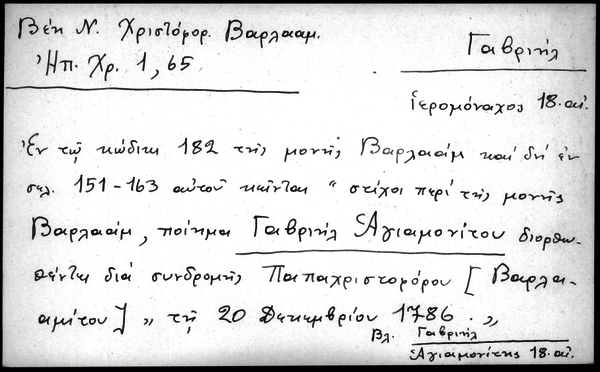 Βέη Ν. Χριστόφορ. Βαρλααμ.
Ἠπ. Χρ. 1, 65
Γαβριήλ
ἱερομόναχος 18. αἰ.
Ἐν τῷ κώδικι 182 τῆς μονῆς Βαρλαάμ καί δή ἐν
σελ. 151-163 αὐτοῦ κεῖνται " στίχοι περί τῆς μονῆς
Βαρλαάμ, ποίημα Γαβριήλ Ἁγιαμονίτου διορθω-
θέντα διά συνδρομῆς Παπαχριστοφόρου [Βαρλα-
αμίτου] „ τῇ 20 Δεκεμβρίου 1786. „
Βλ. Γαβριήλ
Ἁγιαμονίτης 18. αἰ.